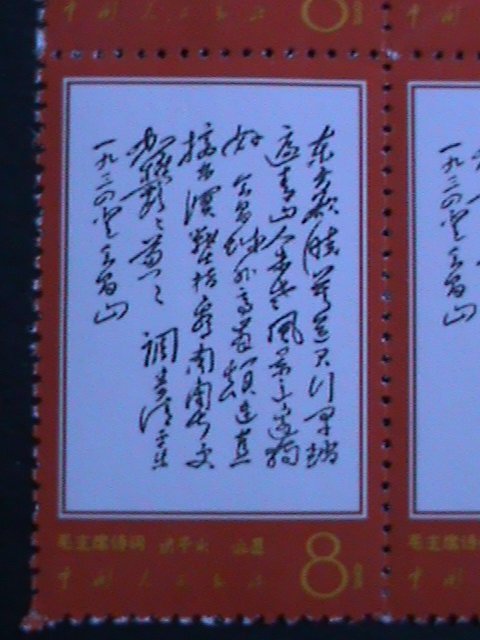 中国人民邮政 8分
东方欲晓莫道君行早踏
遍青山人未老风景这边独
好 会昌城外高峰颠连直
接东溟战士指看南粤更
加郁々葱々 调寄清平乐
一九三四登会昌山
毛主席诗词 清平乐 会昌
中国人民邮政 8分
毛主席诗词
中国